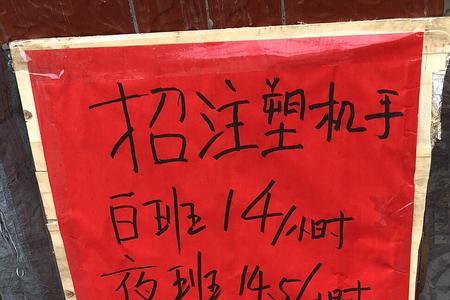 招注塑机手
白班14/小时
夜班14.5/小时